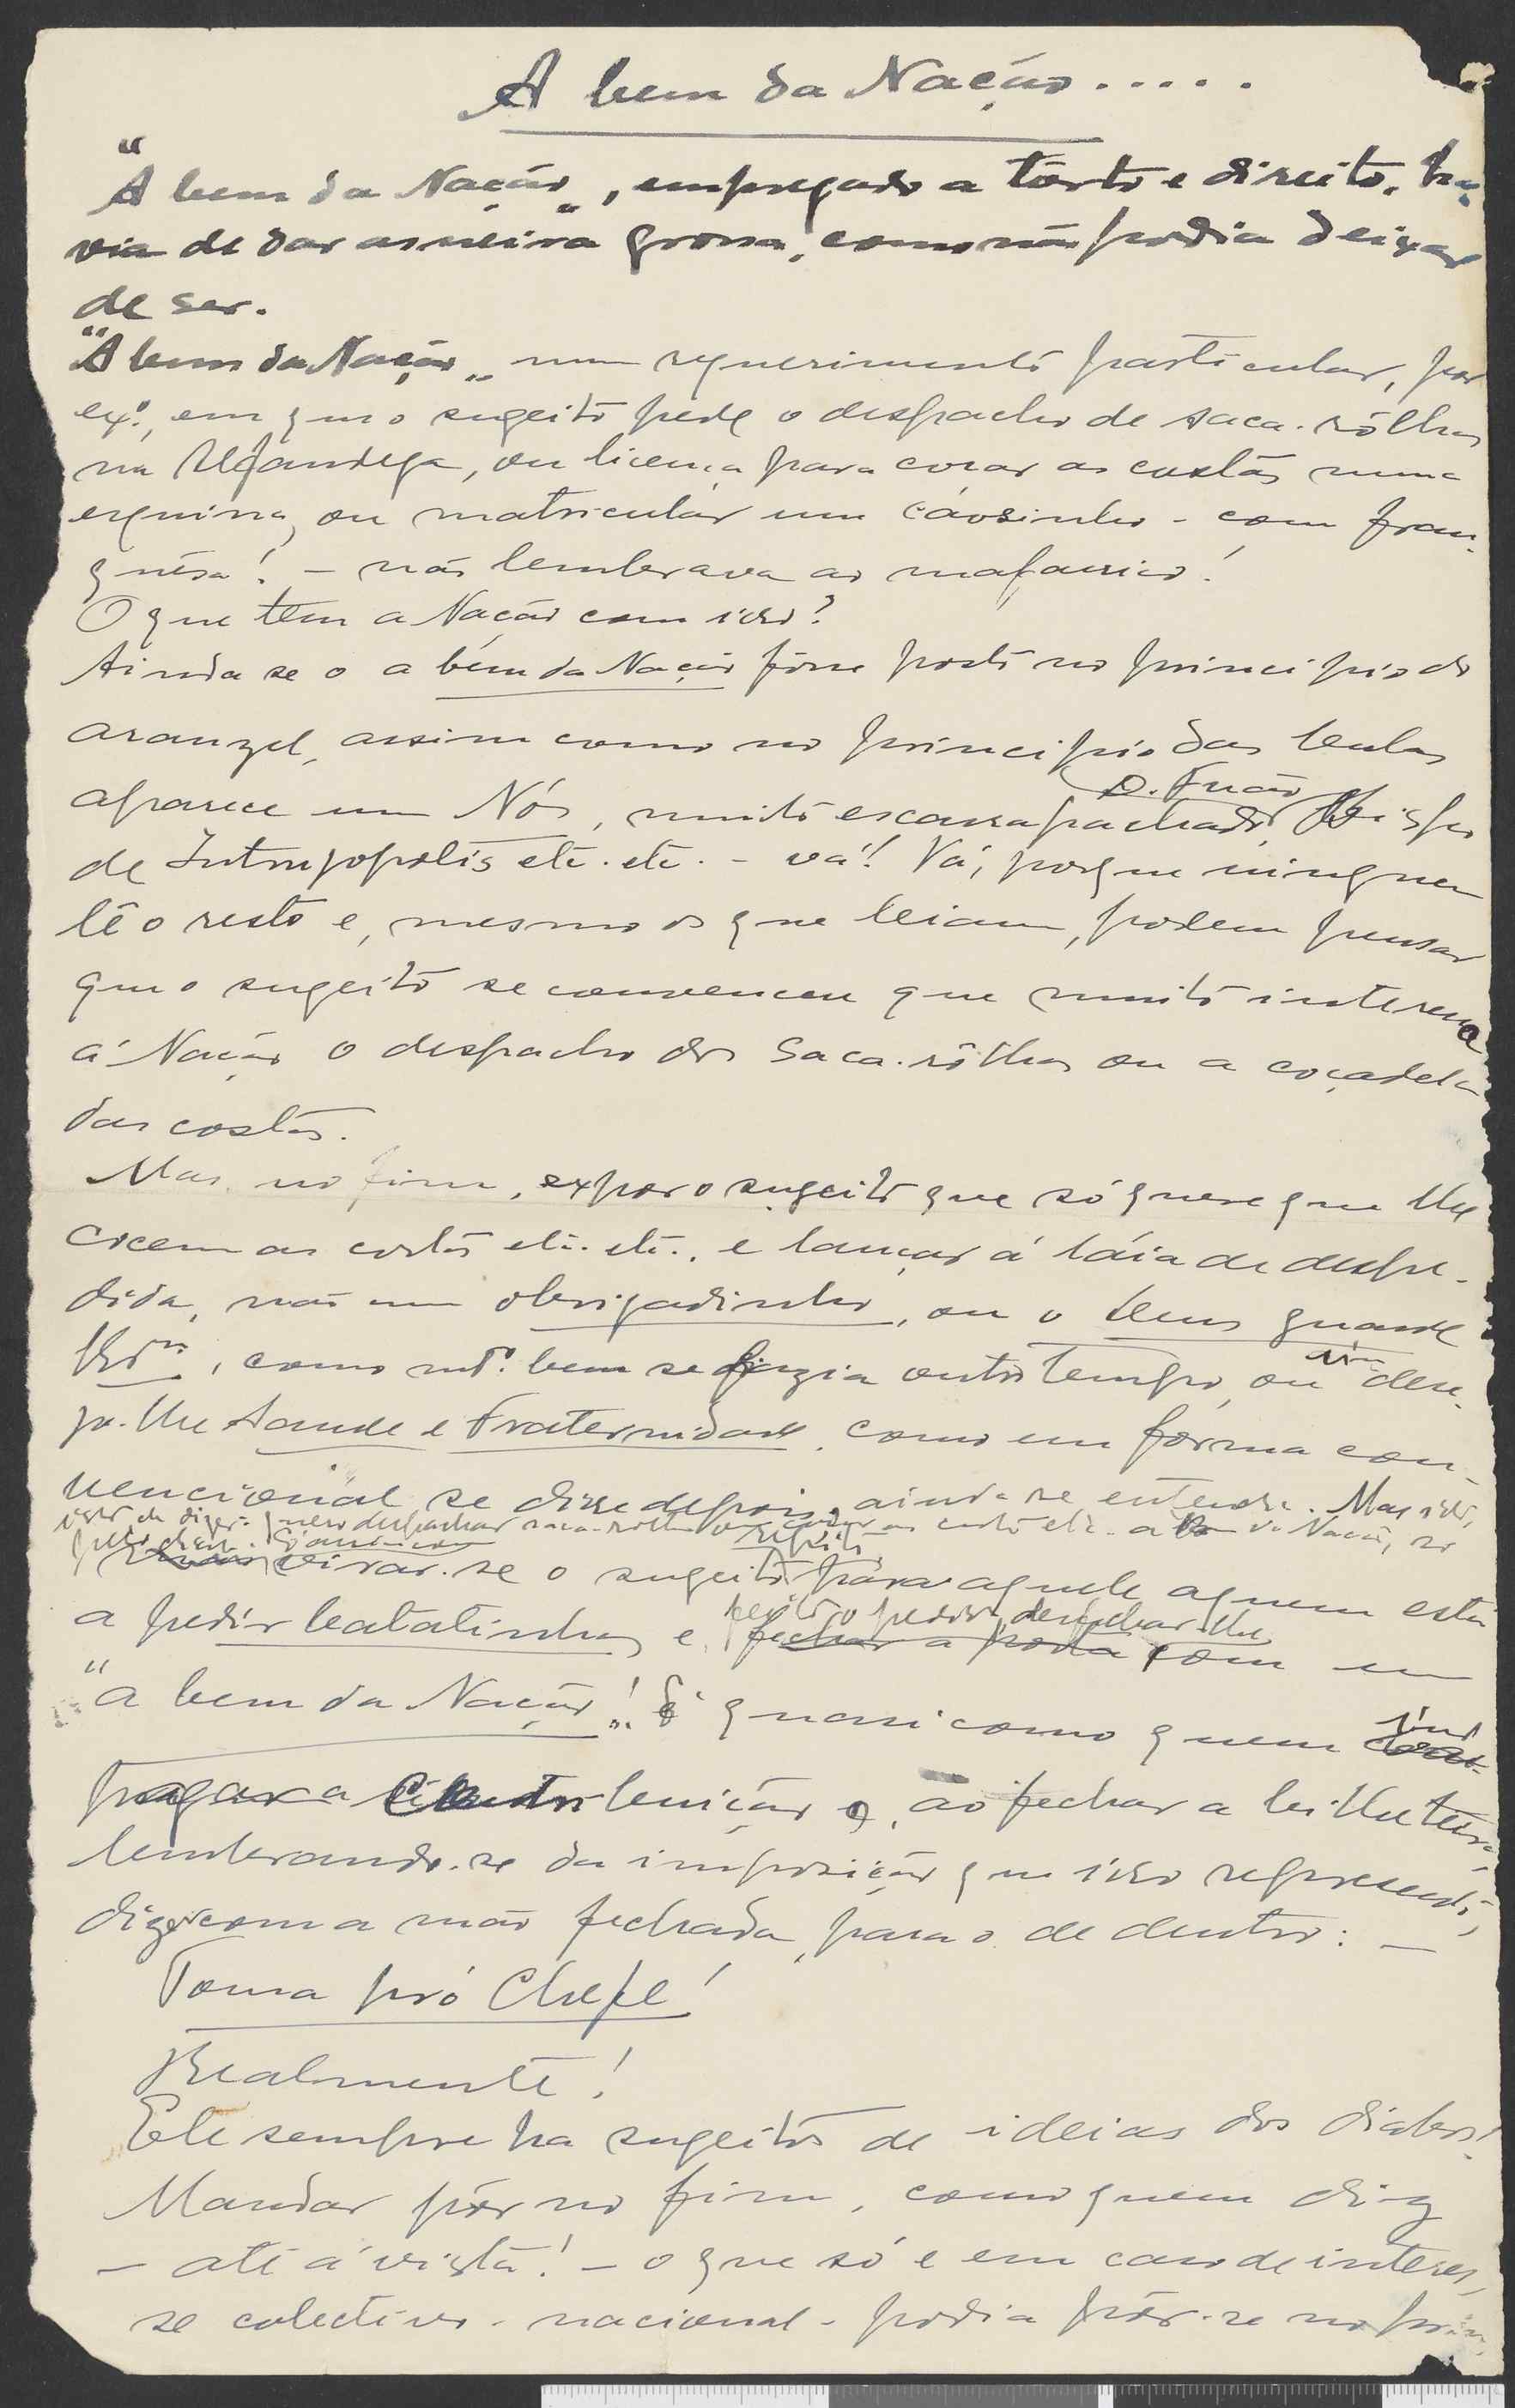 A bem da Nação.....
"A bem da Nação", empregado a tôrto e direito, ha-
via de dar asneira grossa, como não podia deixar
de ser.
"A bem da Nação" num requerimento particular, por
exº., em que o sugeito pede o despacho de saca-rôlhas
na Alfandega, ou licença para coçar as costas numa
esquina, ou matricular um cãosinho - com fran-
quêsa! - não lembrava ao mafarrico!
O que tem a Nação com isso?
Ainda se o a bem da Nação fôsse posto no principio do
aranzel, assim como no principio das bulas
aparece um Nós, muito escarrapachado, D. Fuão Bispo
de Intrujopolis etc. etc. - vá! Vá, porque ninguem
lê o resto e, mesmo os que leiam, podem pensar
que o sugeito se convenceu que muito interessa
á Nação o despacho dos saca-rôlhas ou a coçadela
das costas.
Mas, no fim, expor o sugeito que só quere que lhe
cocem as costas etc. etc., e lançar á láia de despe-
dida, não um obrigadinho, ou o Deus guarde
como mtº. bem se fazia outro tempo, ou um dese-
jo-lhe Saude e Fraternidade, como em forma con-
vencional se disse depois, ainda se entende. Mas isto,
isto de dizer: quero despachar saca-rôlhas ou coçar as costas etc. a bem da Nação, só
virar-se o sugeito para aquele a quem está
a pedir batatinhas e, feito o pedido, desfechar-lhe
fechar a porta com um
"a bem da Nação"! É quasi como quem vai
pagar a contribuição e, ao fechar a bilheteira,
lembrando-se da imposição que isso representa,
dizer com a mão fechada, para o de dentro: -
Toma pró Chefe!
Realmente!
Ele sempre ha sugeitos de ideias dos diabos!
Mandar pôr no fim, como quem diz
- até á vista! - o que só e em caso de interes-
se colectivo - nacional - podia pôr-se no prin-